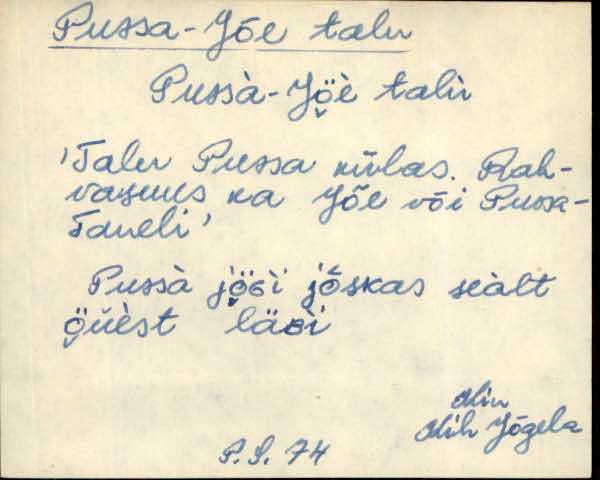 Pussa-Jõe talu
Pussà-Jö̬è talù
'Talu Pussa külas. Rah-
vasuus ka Jõe või Pussa-
Taneli'
Pussà jö̬ɢì jõskas seàlt
ö̬ùèst läʙì
Mih Jõgela
P.S. 74